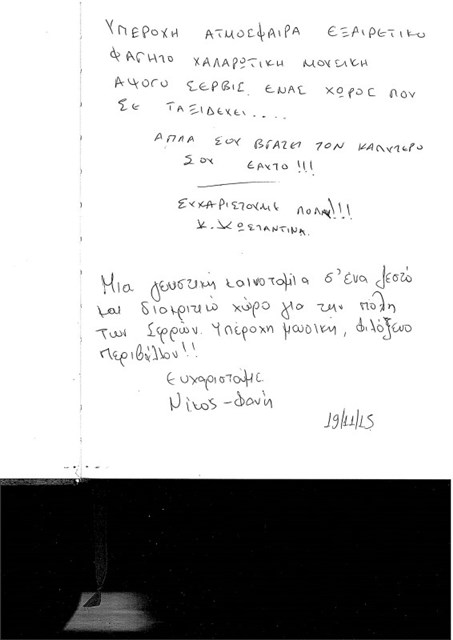 ΥΠΕΡΟΧΗ ΑΤΜΟΣΦΑΙΡΑ ΕΞΑΙΡΕΤΙΚΟ
ΦΑΓΗΤΟ ΧΑΛΑΡΩΤΙΚΗ ΜΟΥΣΙΚΗ
ΑΨΟΓΟ ΣΕΡΒΙΣ. ΕΝΑΣ ΧΩΡΟΣ ΠΟΥ
ΣΕ ΤΑΞΙΔΕΥΕΙ....
ΑΠΛΑ ΣΟΥ ΒΓΑΖΕΙ ΤΟΝ ΚΑΛΥΤΕΡΟ
ΣΟΥ ΕΑΥΤΟ!!!
ΕΥΧΑΡΙΣΤΟΥΜΕ ΠΟΛΥ!!!
Κ. ΚΩΣΤΑΝΤΙΝΑ.
Μια γευστική καινοτομία σ'ένα ζεστό
και διακριτικό χώρο για την πόλη
των Σερρών. Υπέροχη μουσική, φιλόξενο
περιβάλλον!!
Ευχαριστούμε
Νίκος - Φανή
19/11/15